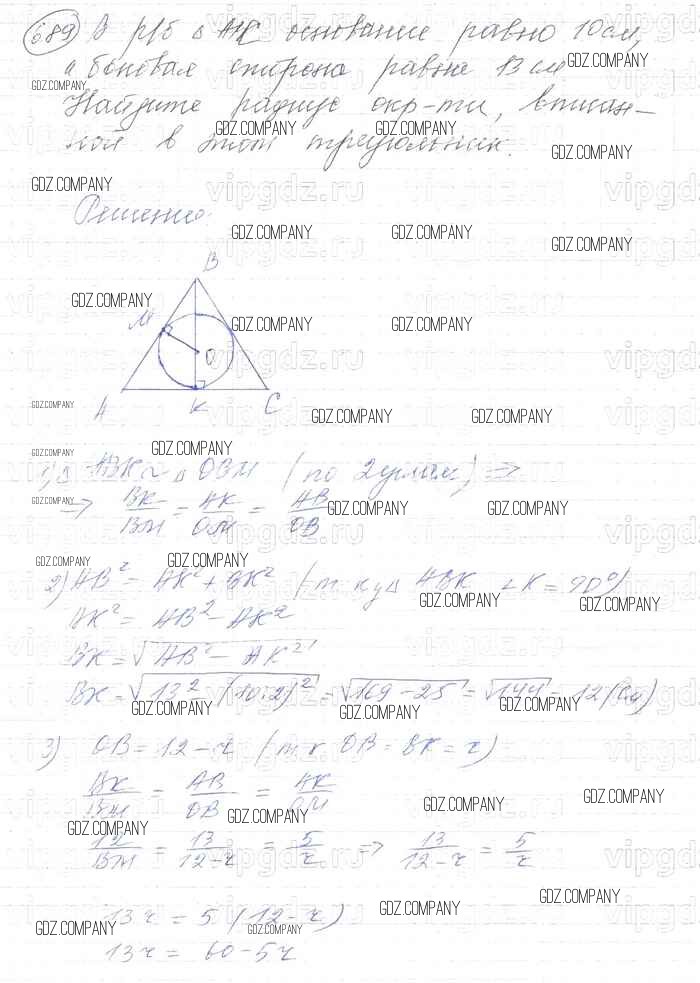 689 В р/б △ АВС основание равно 10 см,
а боковая сторона равна 13 см
Найдите радиус окр-ти, вписан-
ной в этот треугольник.
Решение:
B
M
O
A K C
1) △ ABK ~ △ OBM (по 2 углам) ⇒
⇒ BK/BM = AK/OM = AB/OB
2) AB² = AK² + BK² (т.к. у △ ABK ∠K = 90°)
AK² = AB² − AK²
BK = √(AB² − AK²)
BK = √(13² − (10:2)²) = √(169 − 25) = √144 = 12 (см)
3) OB = 12 − r (т.к OB = BK = r)
BK/BM = AB/OB = AK/OM
12/BM = 13/(12 − r) = 5/r ⇒ 13/(12 − r) = 5/r
13r = 5(12 − r)
13r = 60 − 5r
GDZ.COMPANY
vipgdz.ru